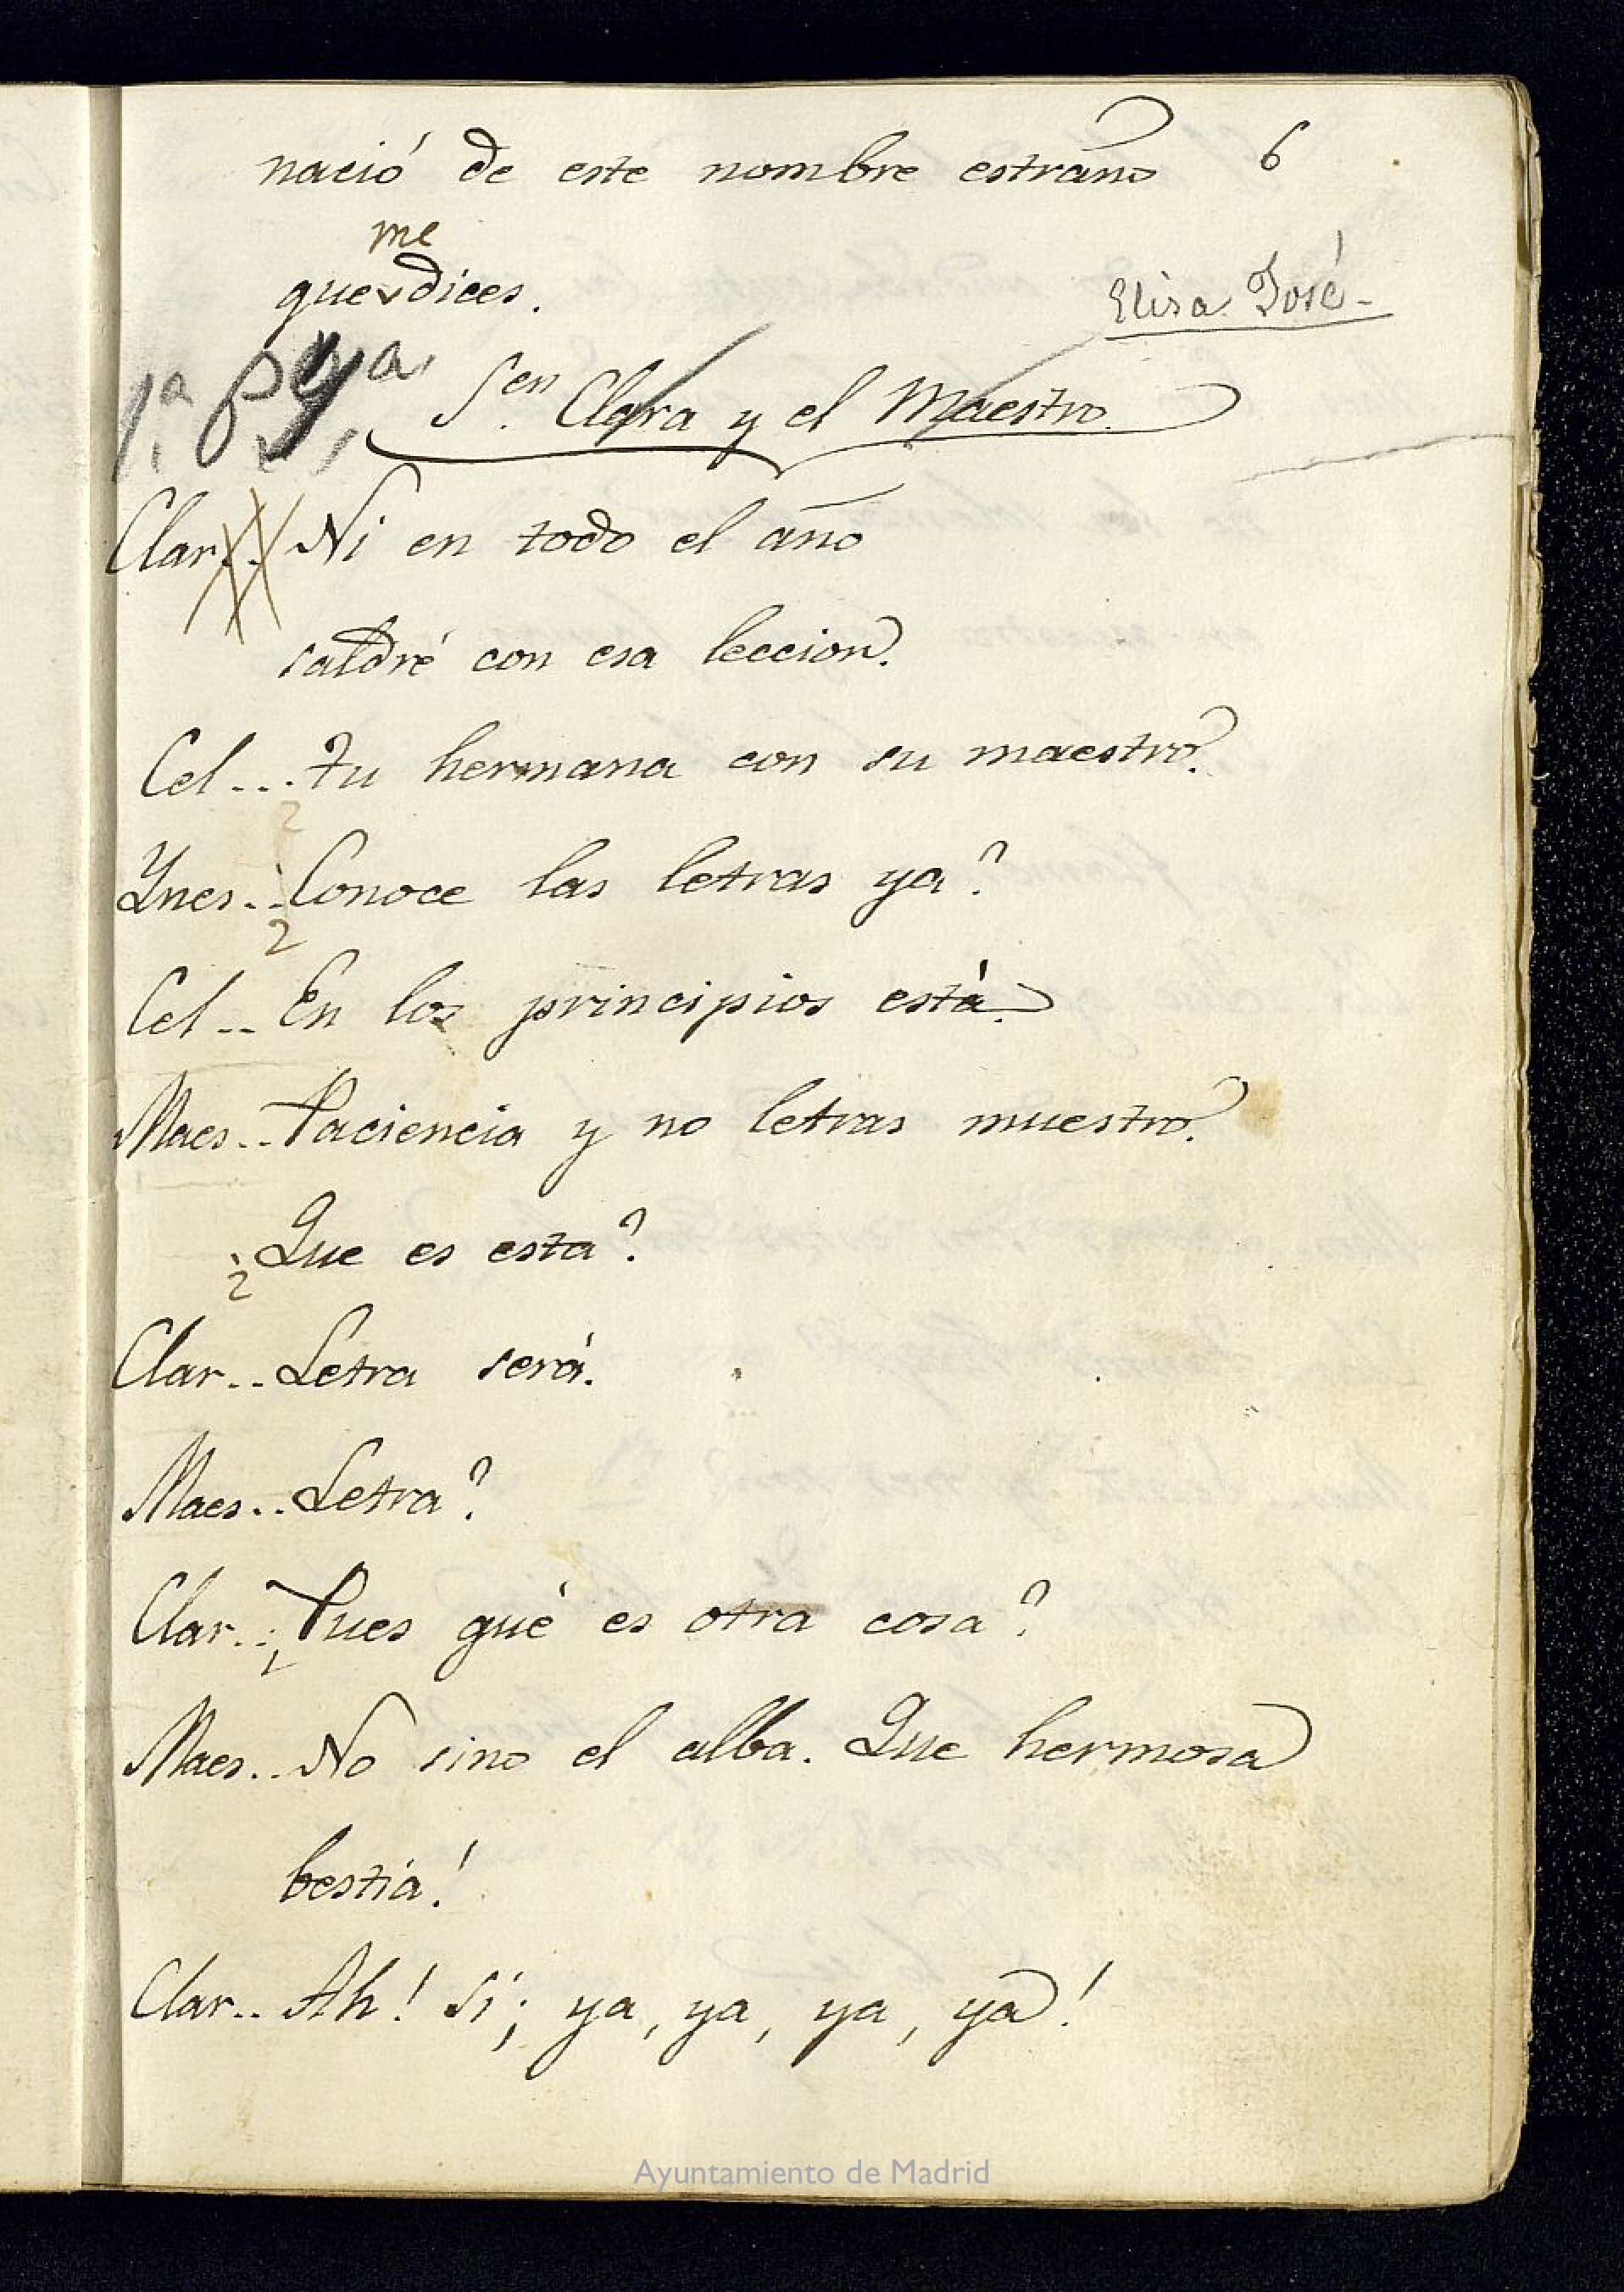 nació de este nombre estraño 6
me
que dices.
Elisa José-
1ª pya,
Sen. Clara y el Maestro.
Clar.. Ni en todo el año
saldré con esa leccion.
Cel... Tu hermana con su maestro.
Ynes.. ¿Conoce las letras ya?
Cel.. En los principios está.
Maes.. Paciencia y no letras muestro.
¿Que es esta?
Clar.. Letra será.
Maes.. Letra?
Clar.. ¿Pues qué es otra cosa?
Maes.. No sino el alba. Que hermosa
bestia!
Clar.. Ah! Si; ya, ya, ya, ya!
Ayuntamiento de Madrid